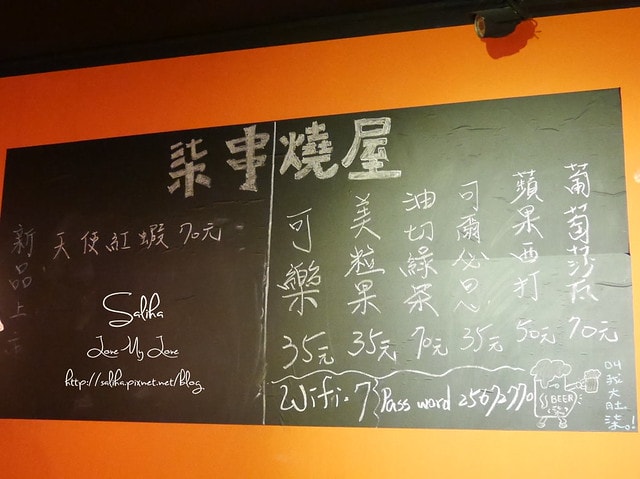 柒串燒屋
新品上市
天使紅蝦 70元
葡萄莎瓦 70元
蘋果西打 50元
可爾必思 35元
油切綠茶 70元
美粒果 35元
可樂 35元
Wifi.7 Pass word 25612770
BEER
叫我大肚柒。!
Saliha
Love My Love
http://saliha.pixnet.net/blog